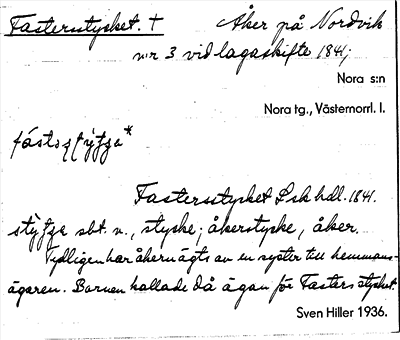 Fastersstycket. † Åker på Nordvik
nr 3 vid lagaskifte 1841;
Nora s:n
Nora tg., Västernorrl. l.
Fastersstycket Lsk hdl. 1841.
sbt. n., stycke; åkerstycke, åker.
Tydligen har åkern ägts av en syster till hemmans-
ägaren. Barnen kallade då ägan för Fasters stycket.
Sven Hiller 1936.